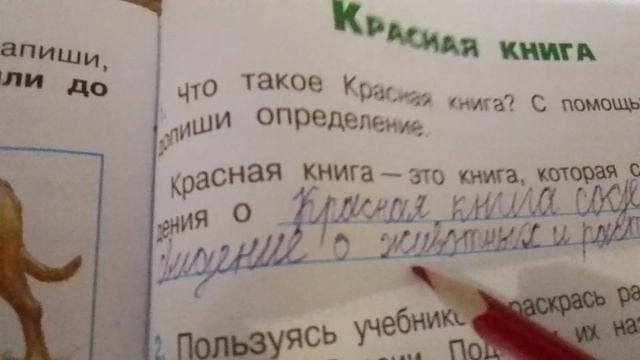 апиши,
ли до
Красная книга
Что такое Красная книга? С помощь
допиши определение.
Красная книга — это книга, которая с
дения о Красная книга соде
о животных и раст
2. Пользуясь учебник раскрась ра
их наз